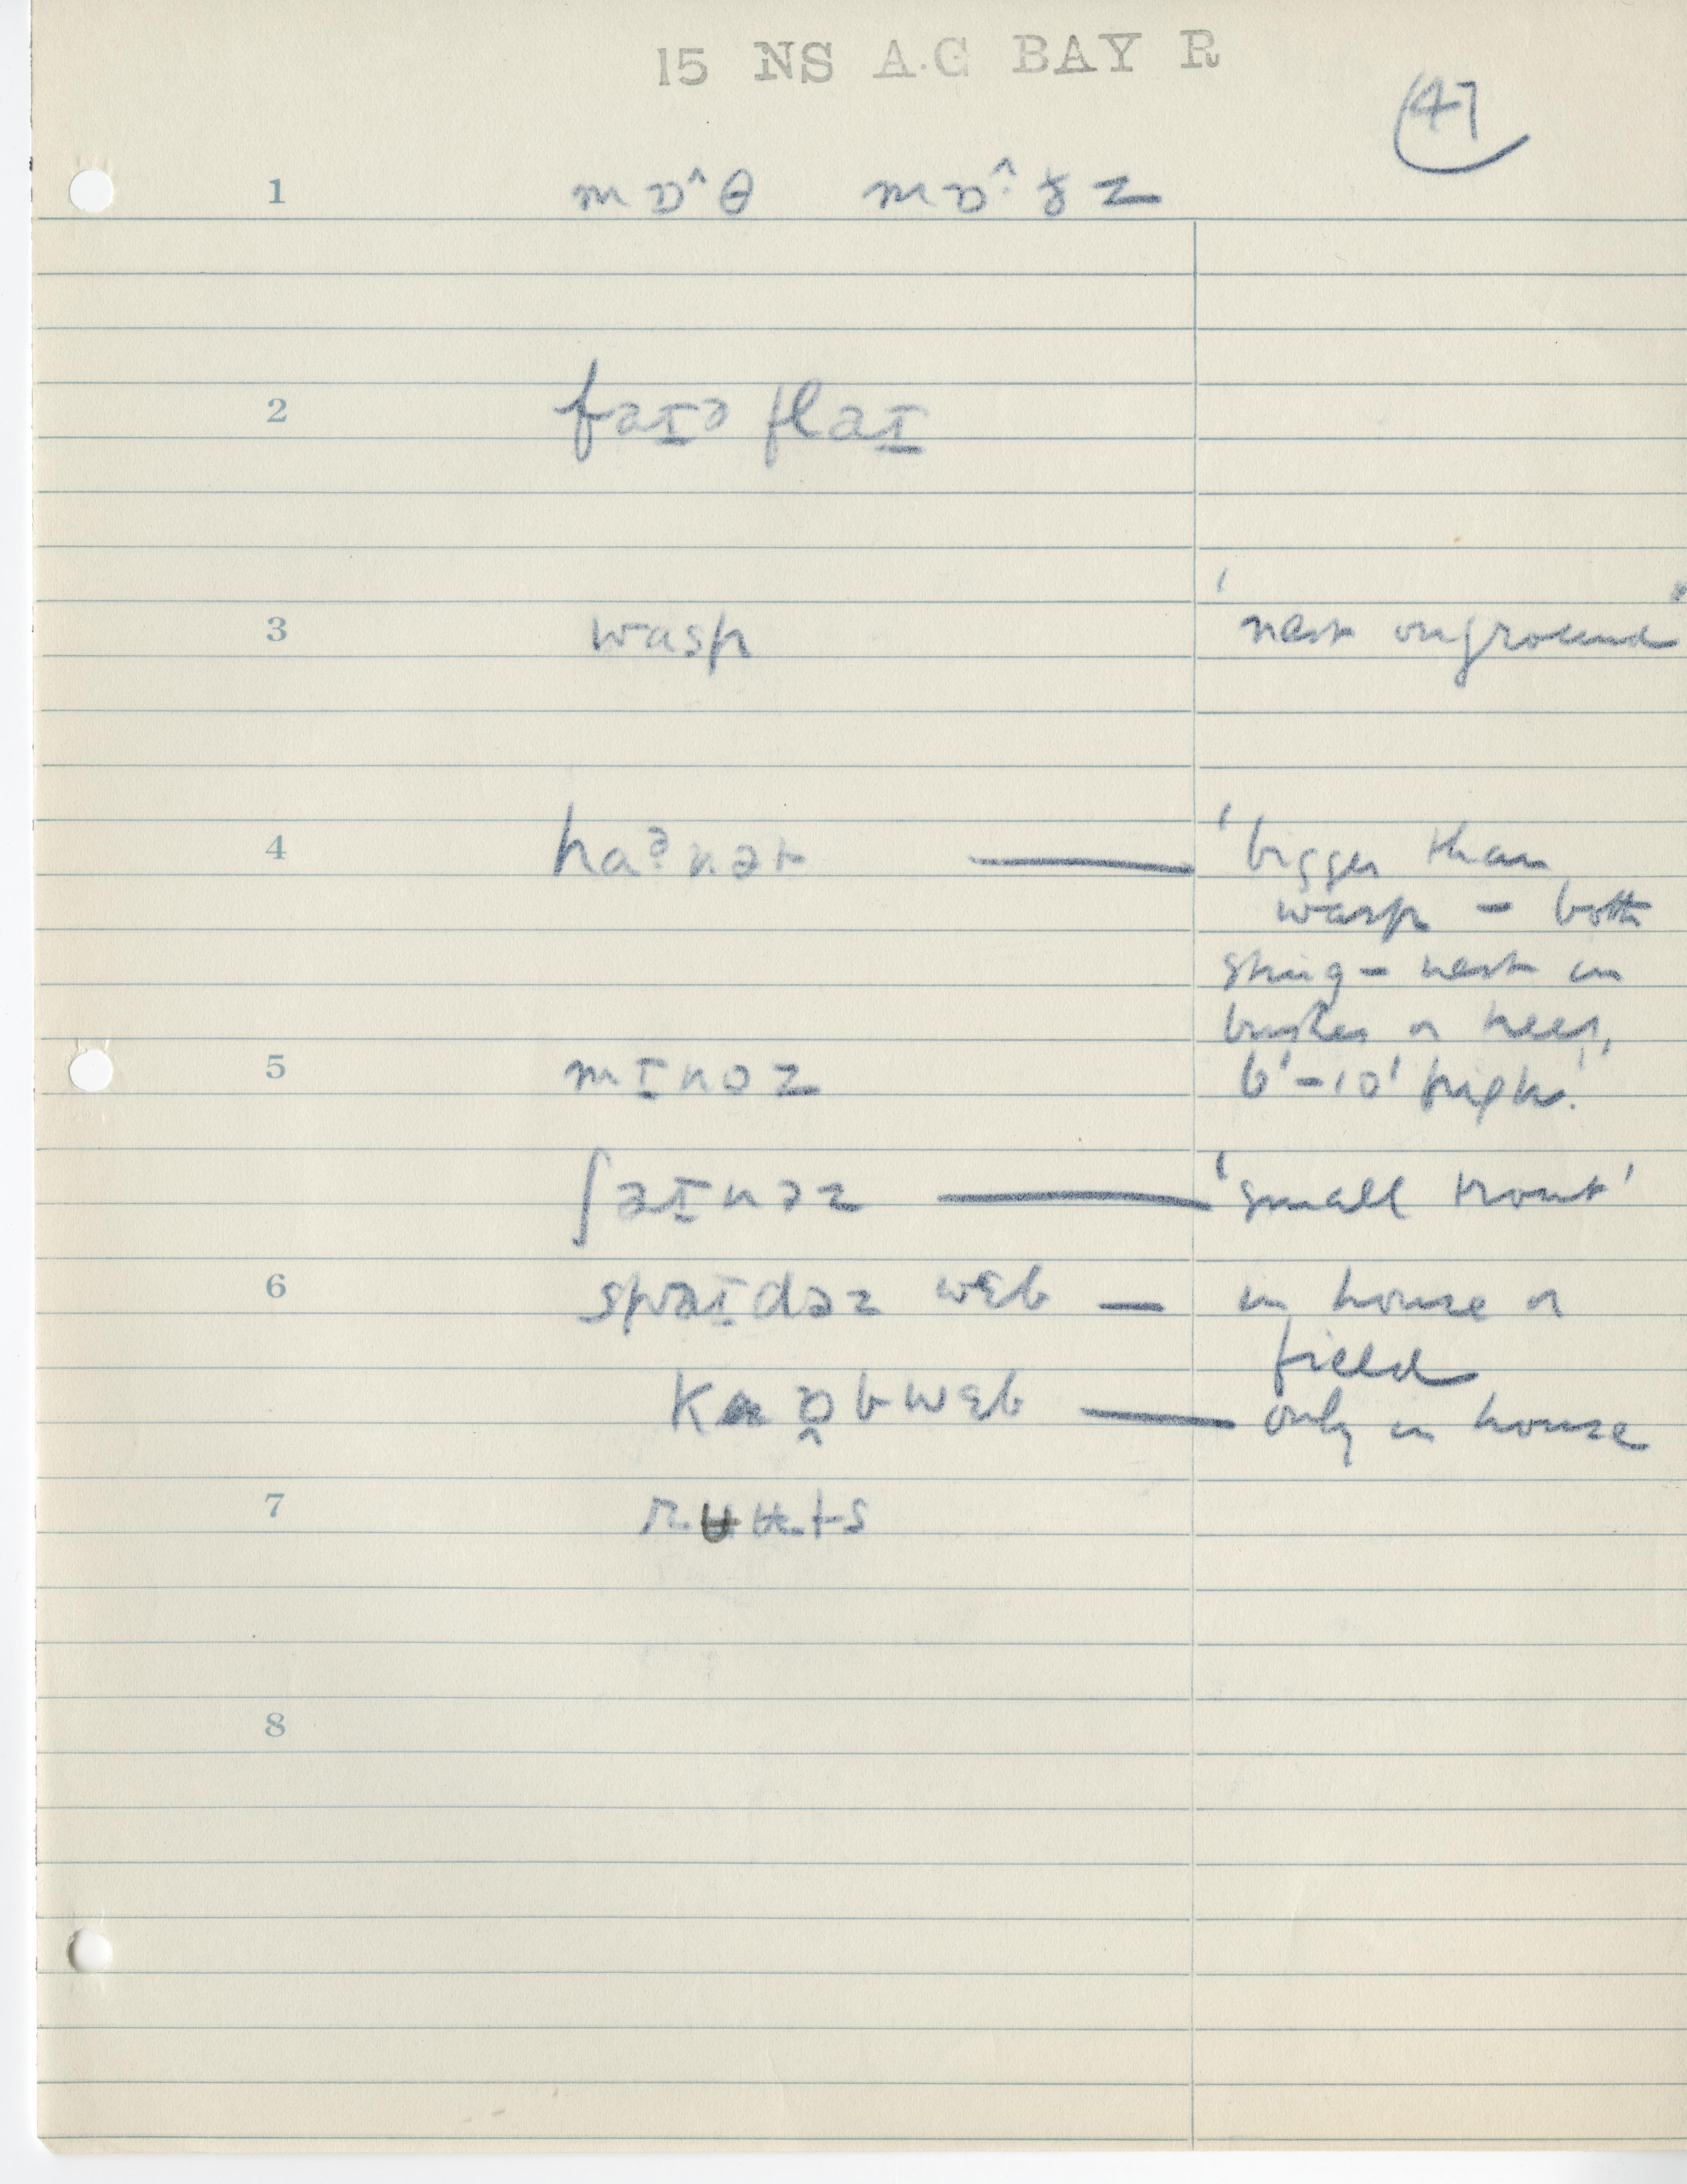 15 NS A.G BAY R
47
1 mɒ^θ mɒ^·ðz
2 faɪə flaɪ
3 wasp 'nest on ground"
4 haᵊnət — 'bigger than
wasp – both
sting – nest in
bushes or trees,
5 mɪnoz 6'–10' high.'
ʃaɪnəz — 'small trout'
6 spaɪdəz wɛb — in house or
field
kɒ^bwɛb — only in house
7 rʉʉts
8